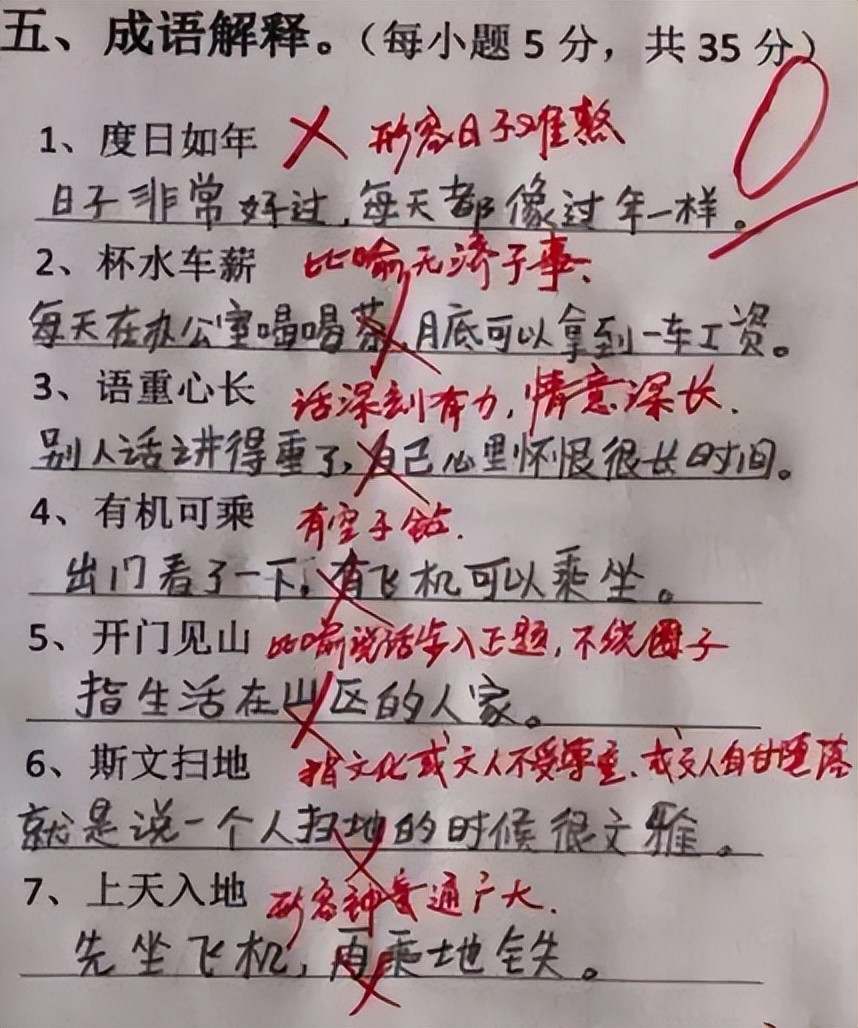 五、成语解释。（每小题5分，共35分）
0
1、度日如年 形容日子难熬
日子非常好过，每天都像过年一样。
2、杯水车薪 比喻无济于事。
每天在办公室喝喝茶，月底可以拿到一车工资。
3、语重心长 话深刻有力，情意深长.
别人话讲得重了，自己心里怀恨很长时间。
4、有机可乘 有空子钻.
出门看了一下，有飞机可以乘坐。
5、开门见山 比喻说话步入正题，不绕圈子
指生活在山区的人家。
6、斯文扫地 指文化或文人不受尊重、或文人自甘堕落
就是说一个人扫地的时候很文雅。
7、上天入地 形容神通广大.
先坐飞机，再乘地铁。